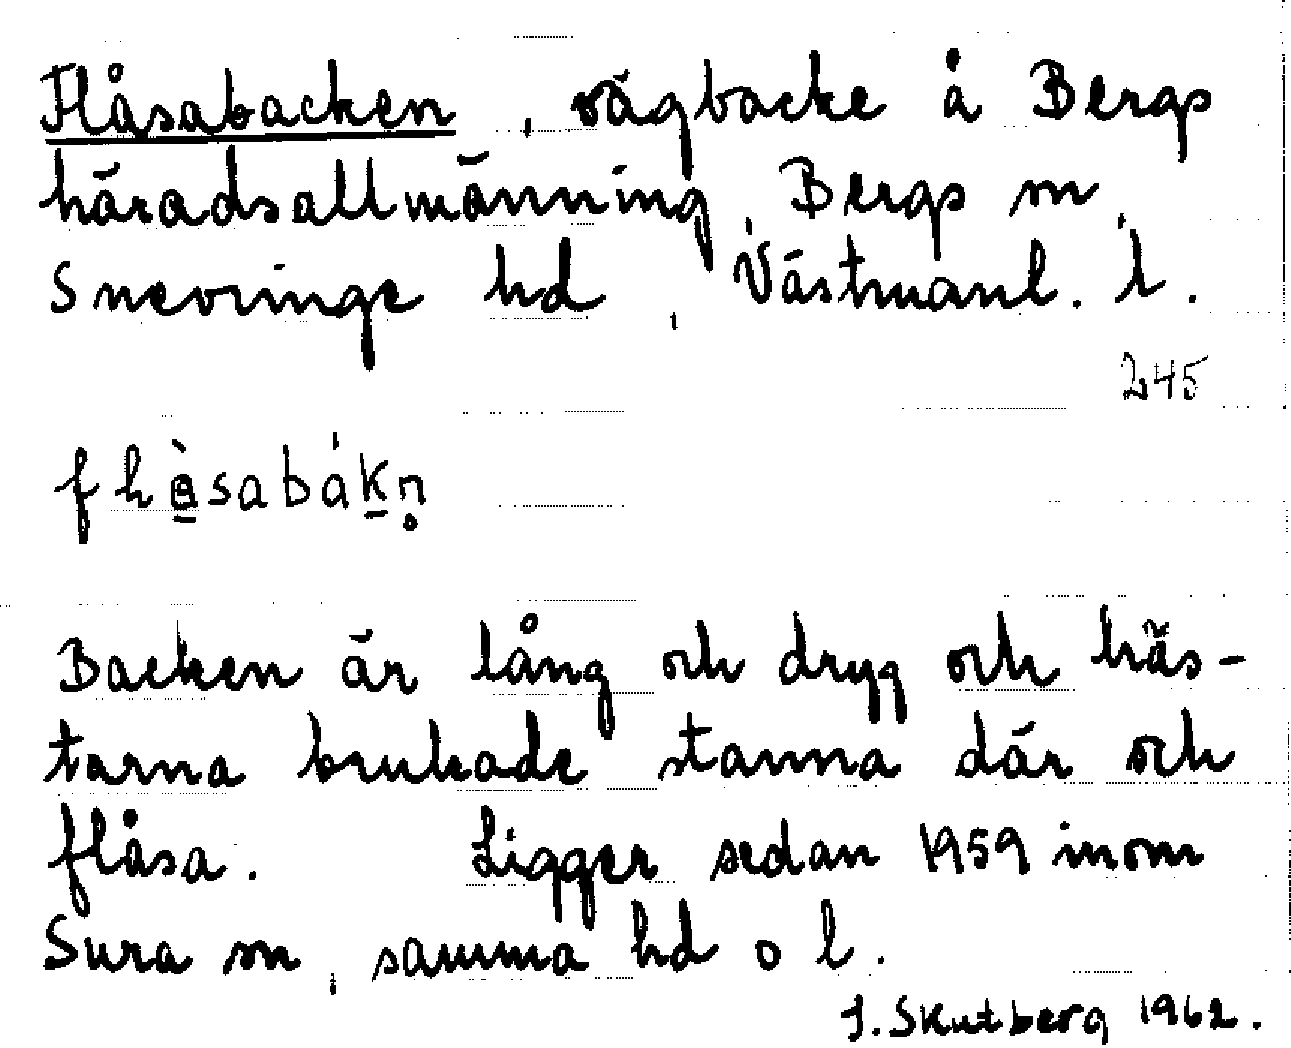 Flåsabacken, vägbacke å Bergs
häradsallmänning, Bergs sn,
Snevringe hd, Västmanl. l.
245
Backen är lång och dryg och häs-
tarna brukade stanna där och
flåsa. Ligger sedan 1959 inom
Sura sn, samma hd o l.
J. Skutberg 1962.